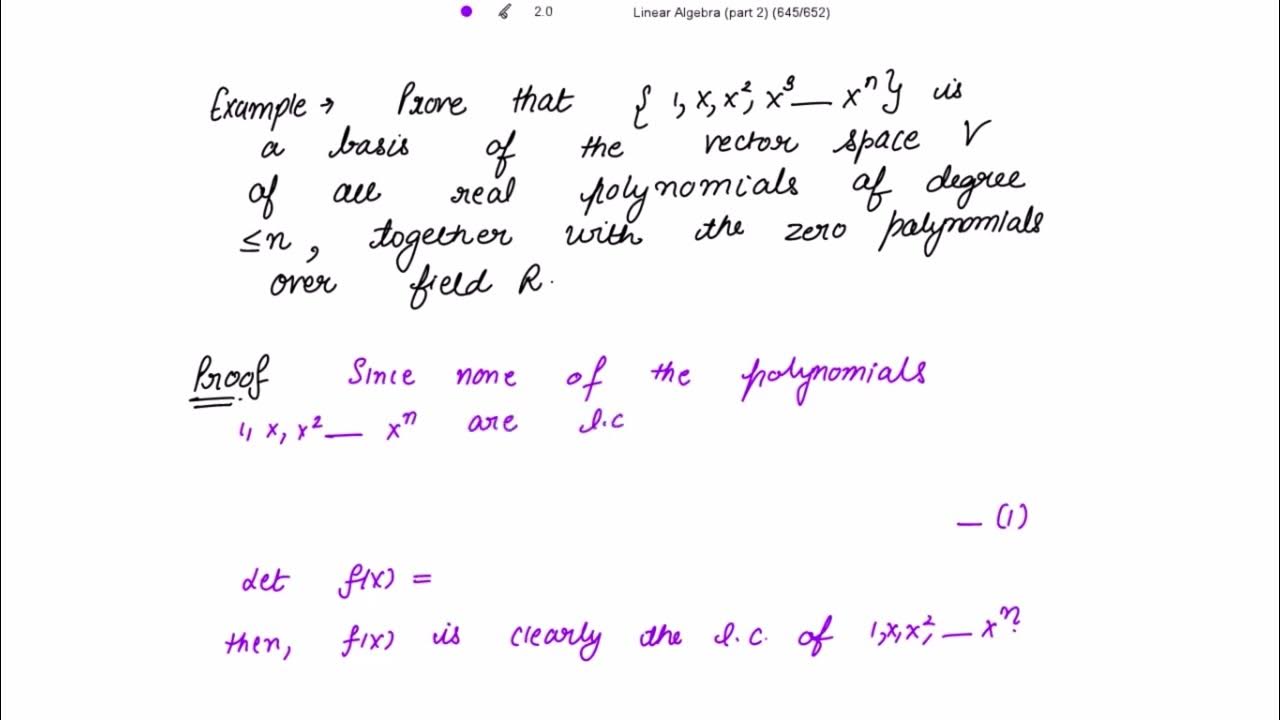 2.0 Linear Algebra (part 2) (645/652)
Example → Prove that { 1, x, x², x³ — xⁿ} is
a basis of the vector space V
of all real polynomials of degree
≤n, together with the zero polynomials
over field R.
Proof Since none of the polynomials
1, x, x² — xⁿ are l.c
— (1)
Let f(x) =
then, f(x) is clearly the l.c. of 1, x, x², — xⁿ.